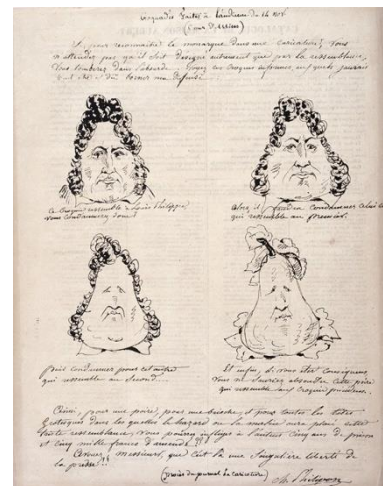 croquades faites à l'audience du 14 nov.
(Cour d'Assises)
Si, pour reconnaître le monarque dans une caricature, vous
n'attendez pas qu'il soit désigné autrement que par la ressemblance,
vous tomberez dans l'absurde. Voyez ces croquis informes, auxquels j'aurais
peut-être dû borner ma défense
Ce croquis ressemble à Louis Philippe,
vous condamnerez donc ?
Alors il faudra condamner celui-ci
qui ressemble au premier.
Puis condamner pour cet autre
qui ressemble au second...
Et enfin, si vous êtes conséquens,
vous ne sauriez absoudre cette poire
qui ressemble aux croquis précédens.
Ainsi, pour une poire, pour une brioche, et pour toutes les têtes
grotesques dans lesquelles le hazard ou la malice aura placé cette
triste ressemblance, vous pourrez infliger à l'auteur cinq ans de prison
et cinq mille francs d'amende !!
Avouez, messieurs, que c'est là une singulière liberté de
la presse !!
Ch. Philipon